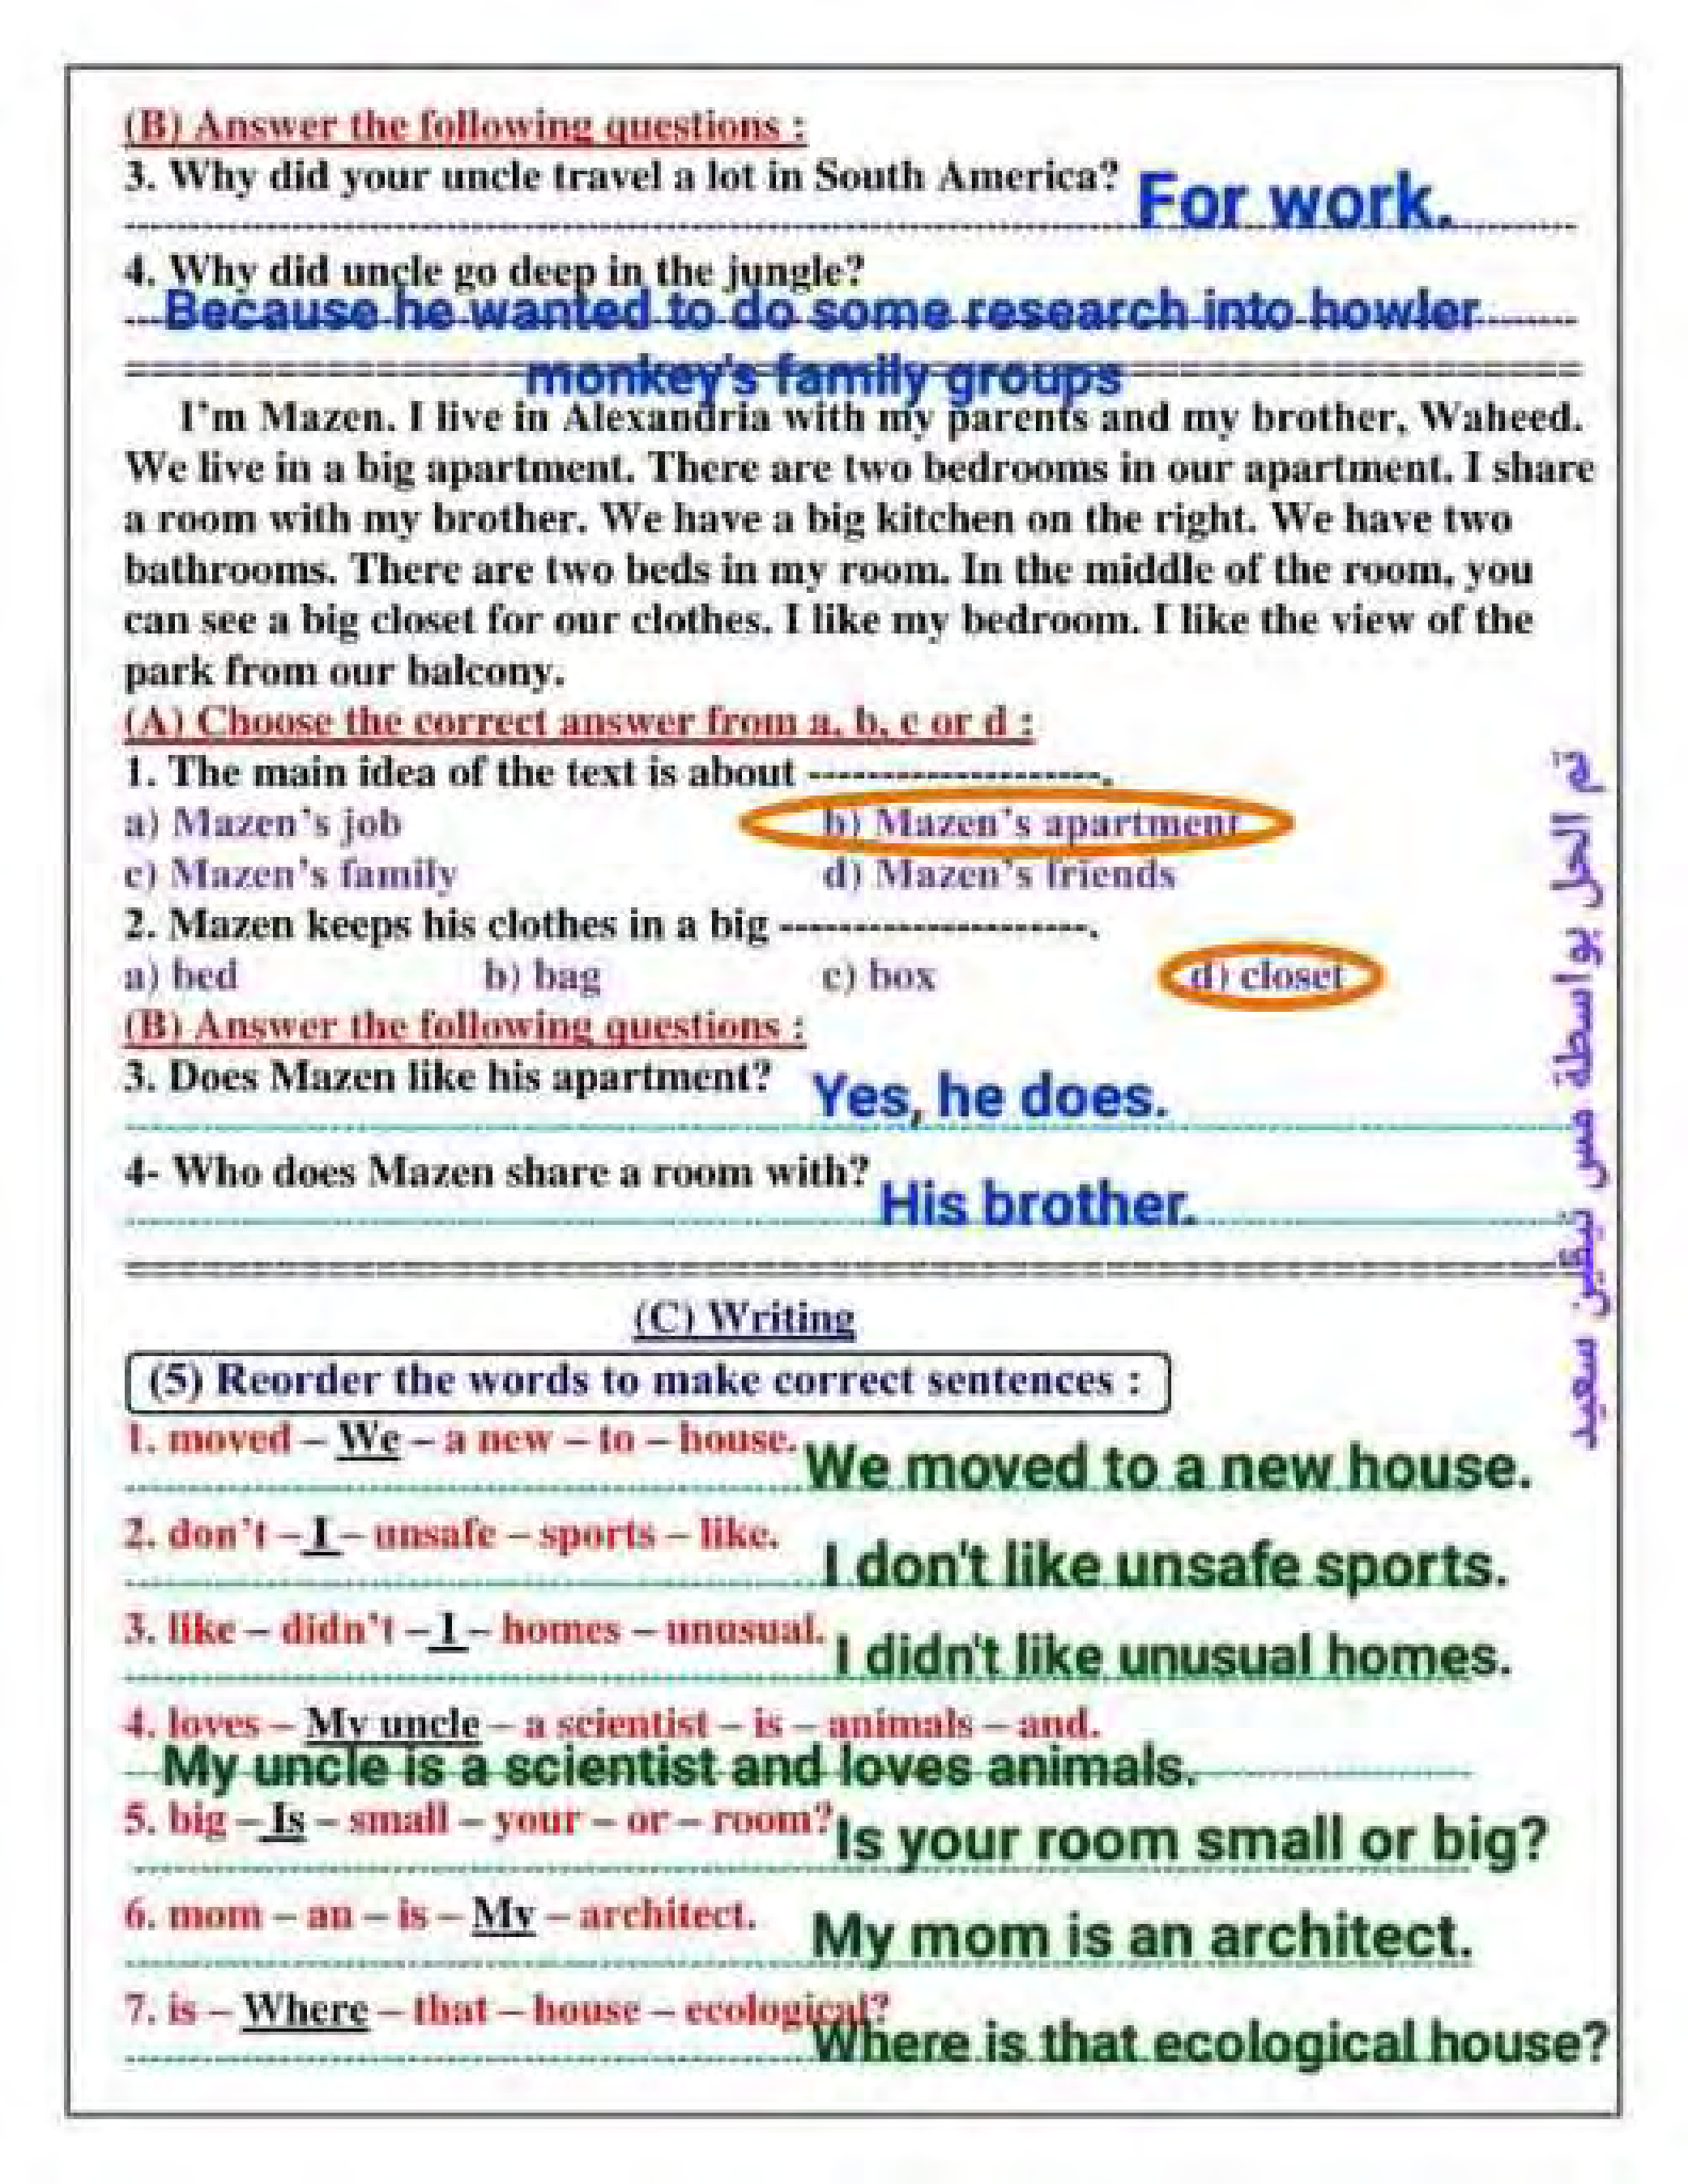 (B) Answer the following questions :
3. Why did your uncle travel a lot in South America?
For work.
4. Why did uncle go deep in the jungle?
Because he wanted to do some research into howler
monkey's family groups
I'm Mazen. I live in Alexandria with my parents and my brother, Waheed.
We live in a big apartment. There are two bedrooms in our apartment. I share
a room with my brother. We have a big kitchen on the right. We have two
bathrooms. There are two beds in my room. In the middle of the room, you
can see a big closet for our clothes. I like my bedroom. I like the view of the
park from our balcony.
(A) Choose the correct answer from a, b, c or d :
1. The main idea of the text is about --------------------.
a) Mazen's job b) Mazen's apartment
c) Mazen's family d) Mazen's friends
2. Mazen keeps his clothes in a big ---------------------.
a) bed b) bag c) box d) closet
(B) Answer the following questions :
3. Does Mazen like his apartment?
Yes, he does.
4- Who does Mazen share a room with?
His brother.
(C) Writing
(5) Reorder the words to make correct sentences :
1. moved – We – a new – to – house.
We moved to a new house.
2. don't – I – unsafe – sports – like.
I don't like unsafe sports.
3. like – didn't – I – homes – unusual.
I didn't like unusual homes.
4. loves – My uncle – a scientist – is – animals – and.
My uncle is a scientist and loves animals.
5. big – Is – small – your – or – room?
Is your room small or big?
6. mom – an – is – My – architect.
My mom is an architect.
7. is – Where – that – house – ecological?
Where is that ecological house?
تم الحل بواسطة مس نيڤين سعيد